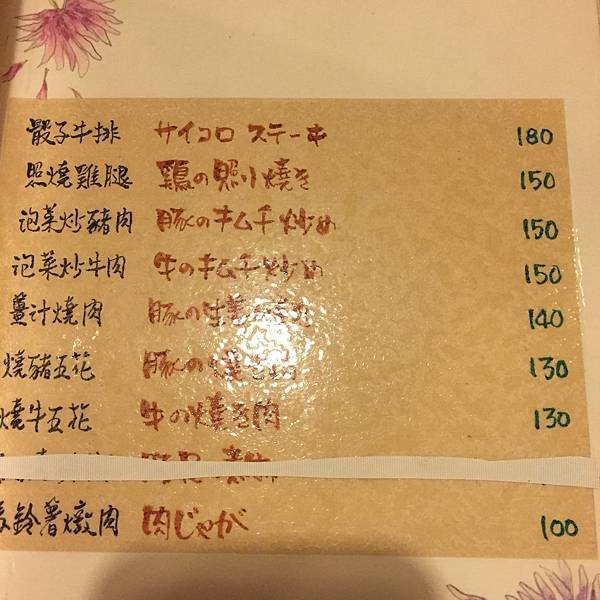 骰子牛排 サイコロ ステーキ 180
照燒雞腿 鶏の照り焼き 150
泡菜炒豬肉 豚のキムチ炒め 150
泡菜炒牛肉 牛のキムチ炒め 150
薑汁燒肉 豚の生姜 140
燒豬五花 豚の焼き肉 130
燒牛五花 牛の焼き肉 130
鈴薯燉肉 肉じゃが 100